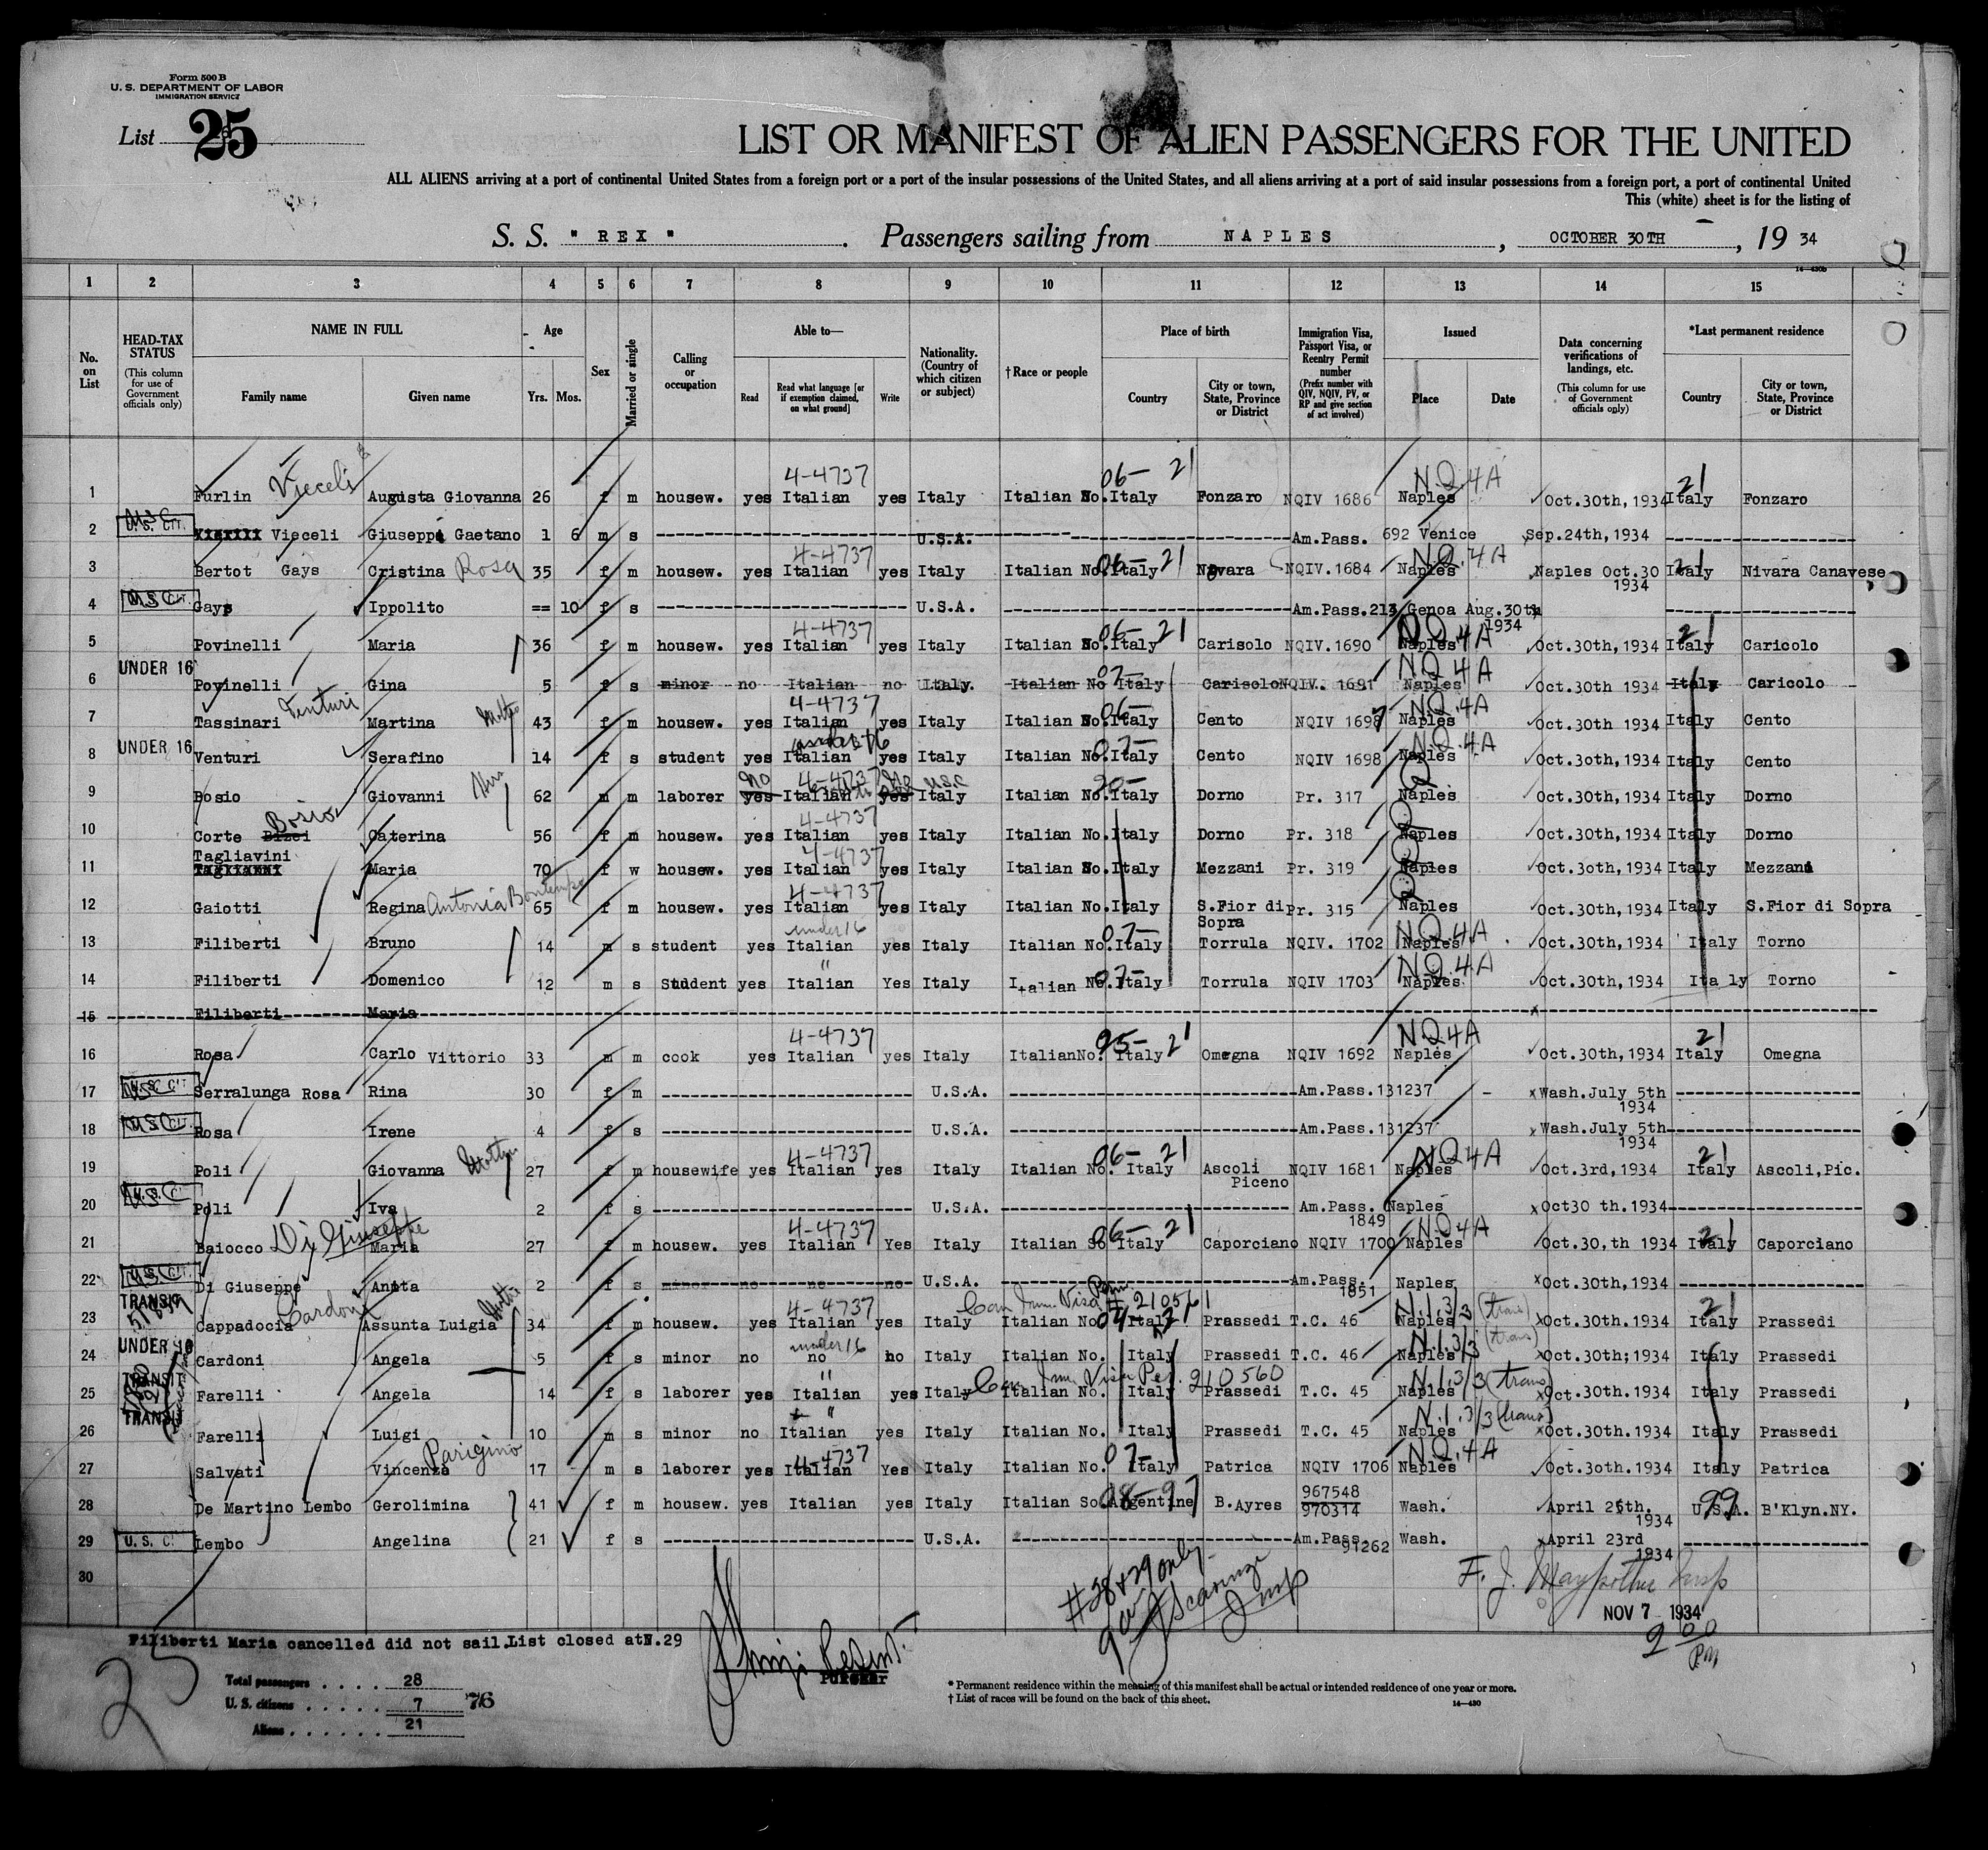 Form 500 B
U. S. DEPARTMENT OF LABOR
IMMIGRATION SERVICE
List 25
LIST OR MANIFEST OF ALIEN PASSENGERS FOR THE UNITED
ALL ALIENS arriving at a port of continental United States from a foreign port or a port of the insular possessions of the United States, and all aliens arriving at a port of said insular possessions from a foreign port, a port of continental United
This (white) sheet is for the listing of
S. S. " REX " . Passengers sailing from NAPLES , OCTOBER 30TH , 19 34
14—430b
1 2 3 4 5 6 7 8 9 10 11 12 13 14 15
No. on List
HEAD-TAX STATUS (This column for use of Government officials only)
NAME IN FULL Family name Given name
Age Yrs. Mos.
Sex
Married or single
Calling or occupation
Able to— Read Read what language [or if exemption claimed, on what ground] Write
Nationality. (Country of which citizen or subject)
†Race or people
Place of birth Country City or town, State, Province or District
Immigration Visa, Passport Visa, or Reentry Permit number (Prefix number with QIV, NQIV, PV, or RP and give section of act involved)
Issued Place Date
Data concerning verifications of landings, etc. (This column for use of Government officials only)
*Last permanent residence Country City or town, State, Province or District
4-4737 06- 21 N.Q.4A 21
1 Furlin Vieceli Augusta Giovanna 26 f m housew. yes Italian yes Italy Italian No. Italy Fonzaro NQIV 1686 Naples Oct.30th,1934 Italy Fonzaro
U.S. CIT.
2 Vieceli Giuseppe Gaetano 1 6 m s U.S.A. Am.Pass. 692 Venice Sep.24th,1934
4-4737 06- 21 N.Q.4A 21
3 Bertot Gays Cristina Rosa 35 f m housew. yes Italian yes Italy Italian No. Italy Novara NQIV.1684 Naples Naples Oct.30 1934 Italy Nivara Canavese
4 Gays Ippolito == 10 f s U.S.A. Am.Pass.213 Genoa Aug.30th 1934
4-4737 06- 21 N.Q.4A 21
5 Povinelli Maria 36 f m housew. yes Italian yes Italy Italian No. Italy Carisolo NQIV.1690 Naples Oct.30th,1934 Italy Caricolo
UNDER 16 07- N.Q.4A
6 Povinelli Gina 5 f s minor no Italian no Italy Italian No Italy Carisolo NQIV. 1691 Naples Oct.30th 1934 Italy Caricolo
4-4737 06- N.Q.4A
7 Tassinari Venturi Martina 43 f m housew. yes Italian yes Italy Italian No. Italy Cento NQIV 1697 Naples Oct.30th,1934 Italy Cento
UNDER 16 under 16 07- N.Q.4A
8 Venturi Serafino 14 f s student yes Italian yes Italy Italian No. Italy Cento NQIV 1698 Naples Oct.3oth,1934 Italy Cento
no 4-4737 U.S.C 20- Q
9 Bosio Giovanni 62 m m laborer yes Italian yes Italy Italian No. Italy Dorno Pr. 317 Naples Oct.30th,1934 Italy Dorno
4-4737 Q
10 Corte Bosio Caterina 56 f m housew. yes Italian yes Italy Italian No. Italy Dorno Pr. 318 Naples Oct.30th,1934 Italy Dorno
4-4737 Q
11 Tagliavini Maria 70 f w housew. yes Italian yes Italy Italian No. Italy Mezzani Pr. 319 Naples Oct.3oth,1934 Italy Mezzani
4-4737 Q
12 Gaiotti Regina Antonia Bontempo 65 f m housew. yes Italian yes Italy Italian No. Italy S.Fior di Sopra Pr. 315 Naples Oct.30th,1934 Italy S.Fior di Sopra
under 16 07- N.Q.4A
13 Filiberti Bruno 14 m s student yes Italian yes Italy Italian No. Italy Torrula NQIV. 1702 Naples Oct.30th,1934 Italy Torno
" 07- N.Q.4A
14 Filiberti Domenico 12 m s Student yes Italian Yes Italy Italian No. Italy Torrula NQIV 1703 Naples Oct.30th,1934 Ita ly Torno
15 Filiberti Maria
4-4737 95- 21 N.Q4A 21
16 Rosa Carlo Vittorio 33 m m cook yes Italian yes Italy ItalianNo. Italy Omegna NQIV 1692 Naples Oct.30th,1934 Italy Omegna
17 Serralunga Rosa Rina 30 f m U.S.A. Am.Pass.131237 - Wash.July 5th 1934
18 Rosa Irene 4 f s U.S.A. Am.Pass.131237 Wash.July 5th 1934
4-4737 06- 21 NQ4A 21
19 Poli Giovanna 27 f m housewife yes Italian yes Italy Italian No. Italy Ascoli Piceno NQIV 1681 Naples Oct.3rd,1934 Italy Ascoli,Pic.
20 Poli Iva 2 f s U.S.A. Am.Pass. 1849 Naples Oct30 th.1934
4-4737 06- 21 NQ4A 21
21 Baiocco Di Giuseppe Maria 27 f m housew. yes Italian Yes Italy Italian So Italy Caporciano NQIV 1700 Naples Oct.30,th 1934 Italy Caporciano
22 Di Giuseppe Anita 2 f s minor no no no U.S.A. Am.Pass. 1851 Naples Oct.30th,1934
TRANSIT 4-4737 Can Imm. Visa # 210561 N.1.3/3 (trans) 21
23 Cappadocia Cardoni Assunta Luigia 34 f m housew. yes Italian yes Italy Italian No. Italy Prassedi T.C. 46 Naples Oct.30th.1934 Italy Prassedi
UNDER 16 under 16 N.1.3/3 (trans)
24 Cardoni Angela 5 f s minor no no no Italy Italian No. Italy Prassedi T.C. 46 Naples Oct.30th;1934 Italy Prassedi
TRANSIT " Can Imm. Visa Per. 210560 N.1.3/3 (trans)
25 Farelli Angela 14 f s laborer yes Italian yes Italy Italian No. Italy Prassedi T.C. 45 Naples Oct.30th.1934 Italy Prassedi
TRANSIT " N.1.3/3 (trans)
26 Farelli Luigi 10 m s minor no Italian yes Italy Italian No. Italy Prassedi T.C. 45 Naples Oct.30th.1934 Italy Prassedi
4-4737 07- N.Q.4A
27 Salvati Vincenzo Parigino 17 m s laborer yes Italian Yes Italy Italian No. Italy Patrica NQIV 1706 Naples Oct.3oth.1934 Italy Patrica
28 De Martino Lembo Gerolimina 41 f m housew. yes Italian yes Italy Italian So. 08-97 Argentine B.Ayres 967548 970314 Wash. April 25th. 1934 99 U.S.A. B'Klyn.NY.
29 U.S. CIT Lembo Angelina 21 f s U.S.A. Am.Pass. 91262 Wash. April 23rd 1934
30
#28 & 29 only
Insp
F. J. Insp
NOV 7 1934
2 00 PM
Filiberti Maria cancelled did not sail.List closed atN.29
25
Total passengers . . . . 28
U. S. citizens . . . . . 7 76
Aliens . . . . . . 21
Purser
* Permanent residence within the meaning of this manifest shall be actual or intended residence of one year or more.
† List of races will be found on the back of this sheet.
14—430